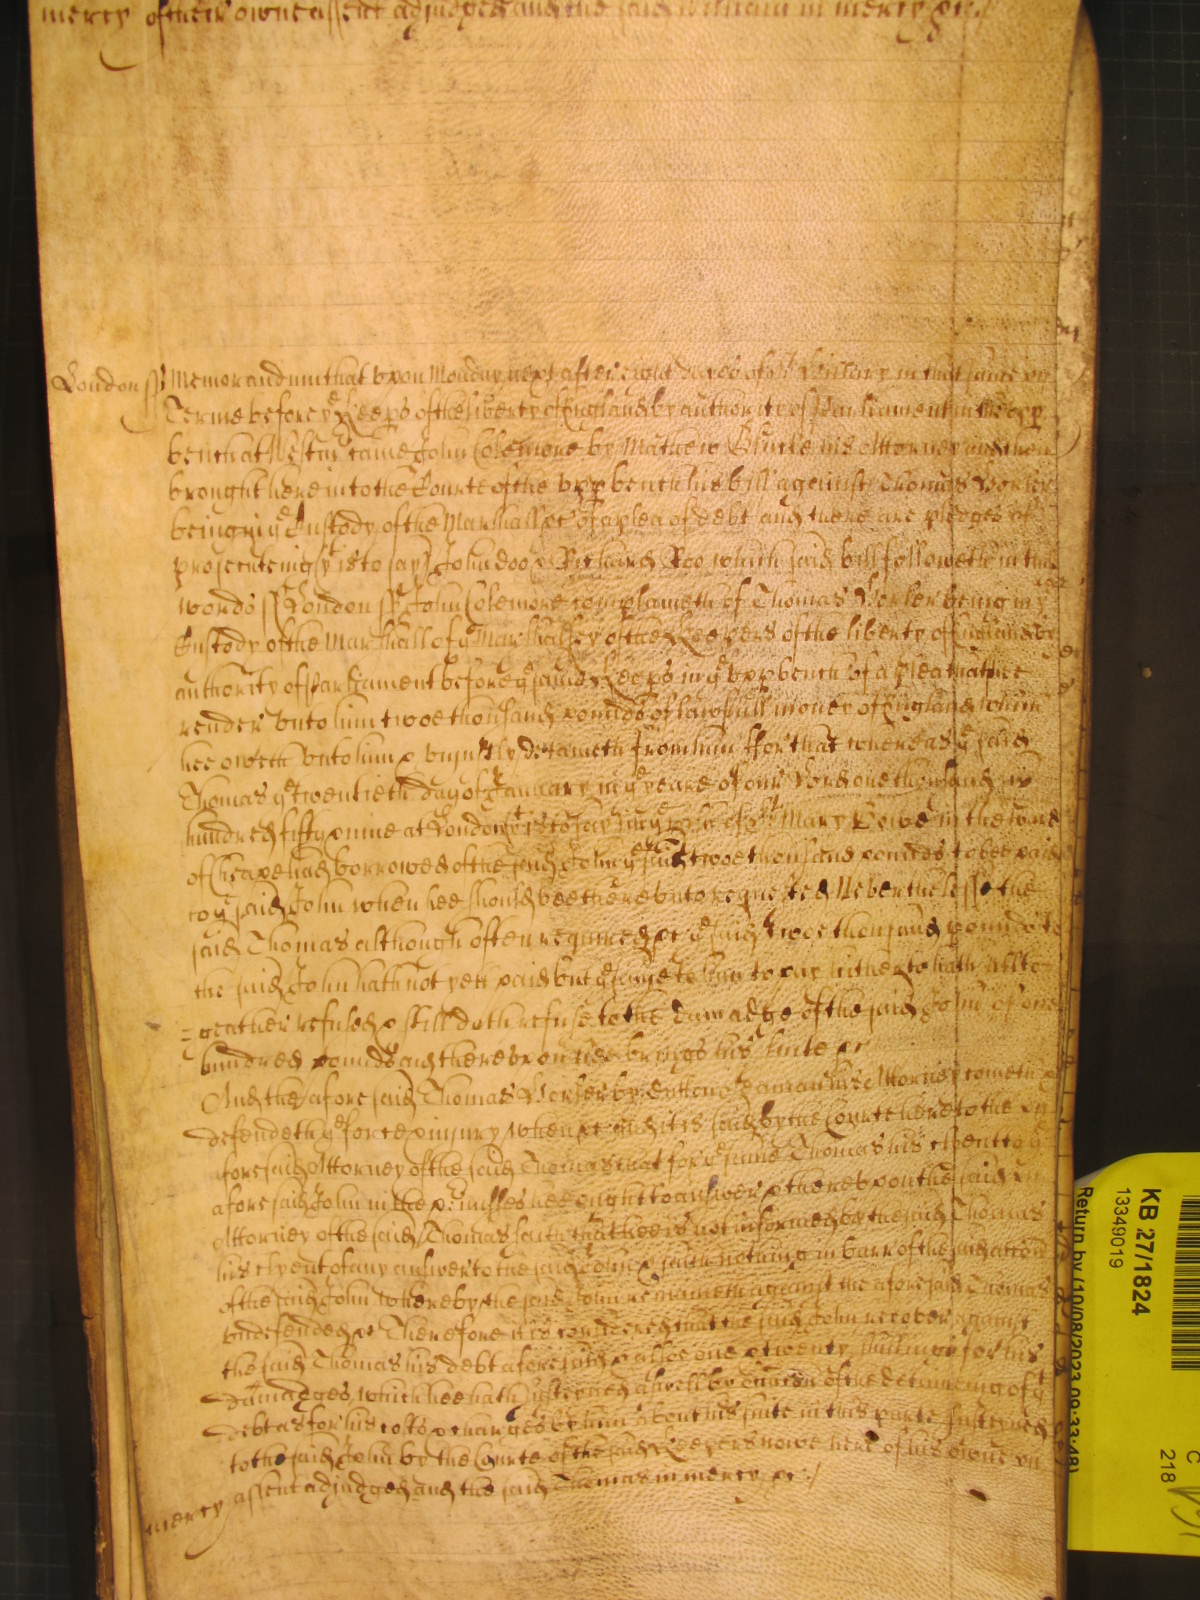 mercy of their owne assent adjudged and the said William in mercy &c
London ss Memorandum that upon Monday next after eight dayes of St Hillary in this same
Terme before ye Keepers of the liberty of England by authority of Parliament in the upp
bench at Westmr came John Colemore by Mathew his Attorney and then
brought here into the Courte of the upp bench his bill against Thomas
being in ye Custody of the Marshall &c of a plea of debt and there are pledges of
prosecuteing yt is to say John Doo & Richard Roo which said bill followeth in these
words ss London ss John Colemore complaineth of Thomas being in ye
Custody of the Marshall of ye Marshalsey of the Keepers of the liberty of England by
authority of Parliament before ye said Keeps in ye upp bench of a plea that hee
render unto him twoe thousand pounds of lawfull money of England which
hee oweth unto him & unjustly detaineth from him ffor that whereas ye said
Thomas ye twentieth day of January in ye yeare of our Lord one thousand six
hundred fifty & nine at London yt is to say in ye pish of St Mary Bowe in the ward
of Cheape had borrowed of the said John ye said twoe thousand pounds to bee paid
to ye said John when hee should bee thereunto requested Neverthelesse the
said Thomas although often required &c ye said twoe thousand pounds to
the said John hath not yett paid but ye same to him to pay hitherto hath alto
=geather refused & still doth refuse to the damadge of the said John of one
hundred pounds and thereupon hee brings his suite &c
And the aforesaid Thomas by his Attorney cometh &
defendeth ye force & injury when &c And it is said by the Courte here to the
aforesaid Attorney of the said Thomas that for ye same Thomas his clyent to ye
aforesaid John in the pmisses hee ought to answer & thereupon the said
Attorney of the said Thomas saith that hee is not informed by the said Thomas
his clyent of any answer to the said John & saith nothing in barr of the said action
of the said John whereby the said John remaineth against the aforesaid Thomas
undefended &c Therefore it is considered that the said John recover against
the said Thomas his debt aforesaid & alsoe one & twenty shillings for his
damadges which hee hath susteyned aswell by occasion of the detaineing of yt
debt as for his costs & charges by him about his suite in this parte susteyned
to the said John by the Courte of the said Keepers nowe here of his owne
assent adjudged and the said Thomas in mercy &c
mercy
KB 27/1824
13349019
Return by (10/08/2023 09:33:48)
C
218